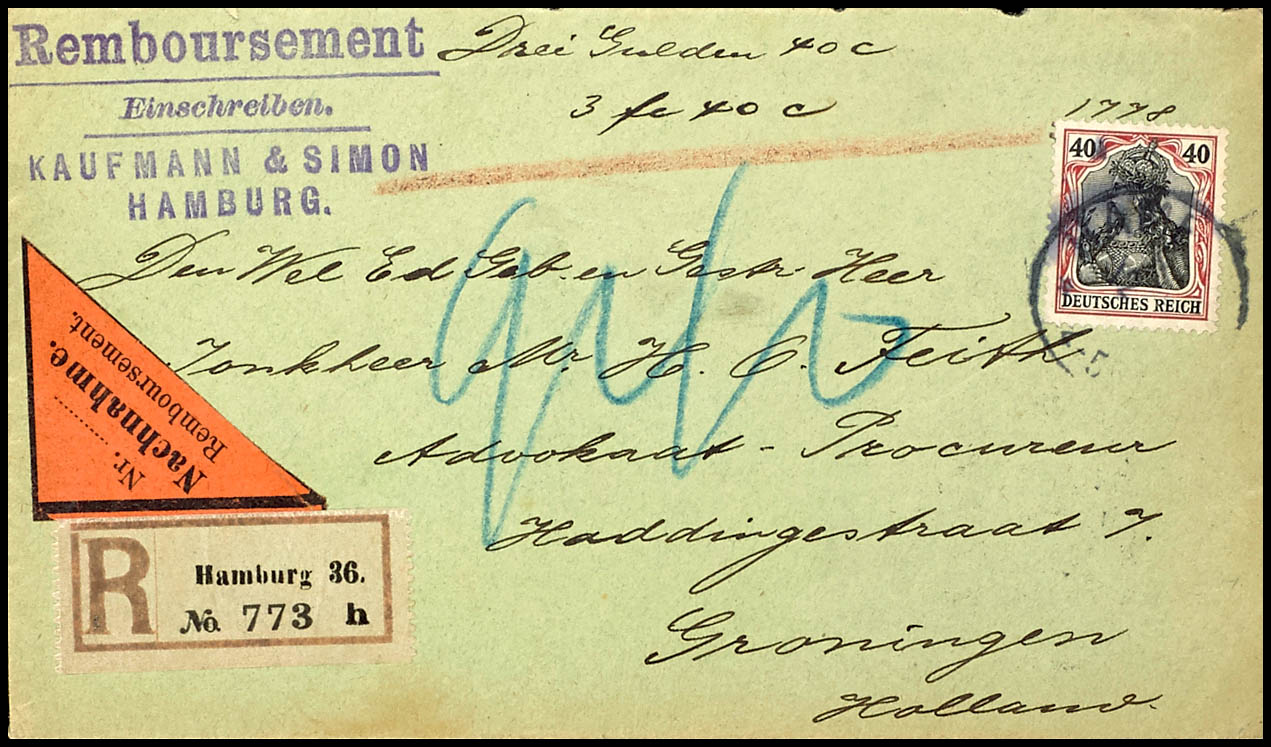 Remboursement
Drei Gulden 40 c
Einschreiben.
3 fl 40 c
1778
KAUFMANN & SIMON
HAMBURG.
40 40
DEUTSCHES REICH
Den Wel Ed Geb. en Gestr. Heer
Jonkheer Mr. H. O. Feith
Advokaat - Procureur
Haddingestraat 7.
Groningen
Holland.
Nr.
Nachnahme.
Remboursement.
R
Hamburg 36.
No. 773 h